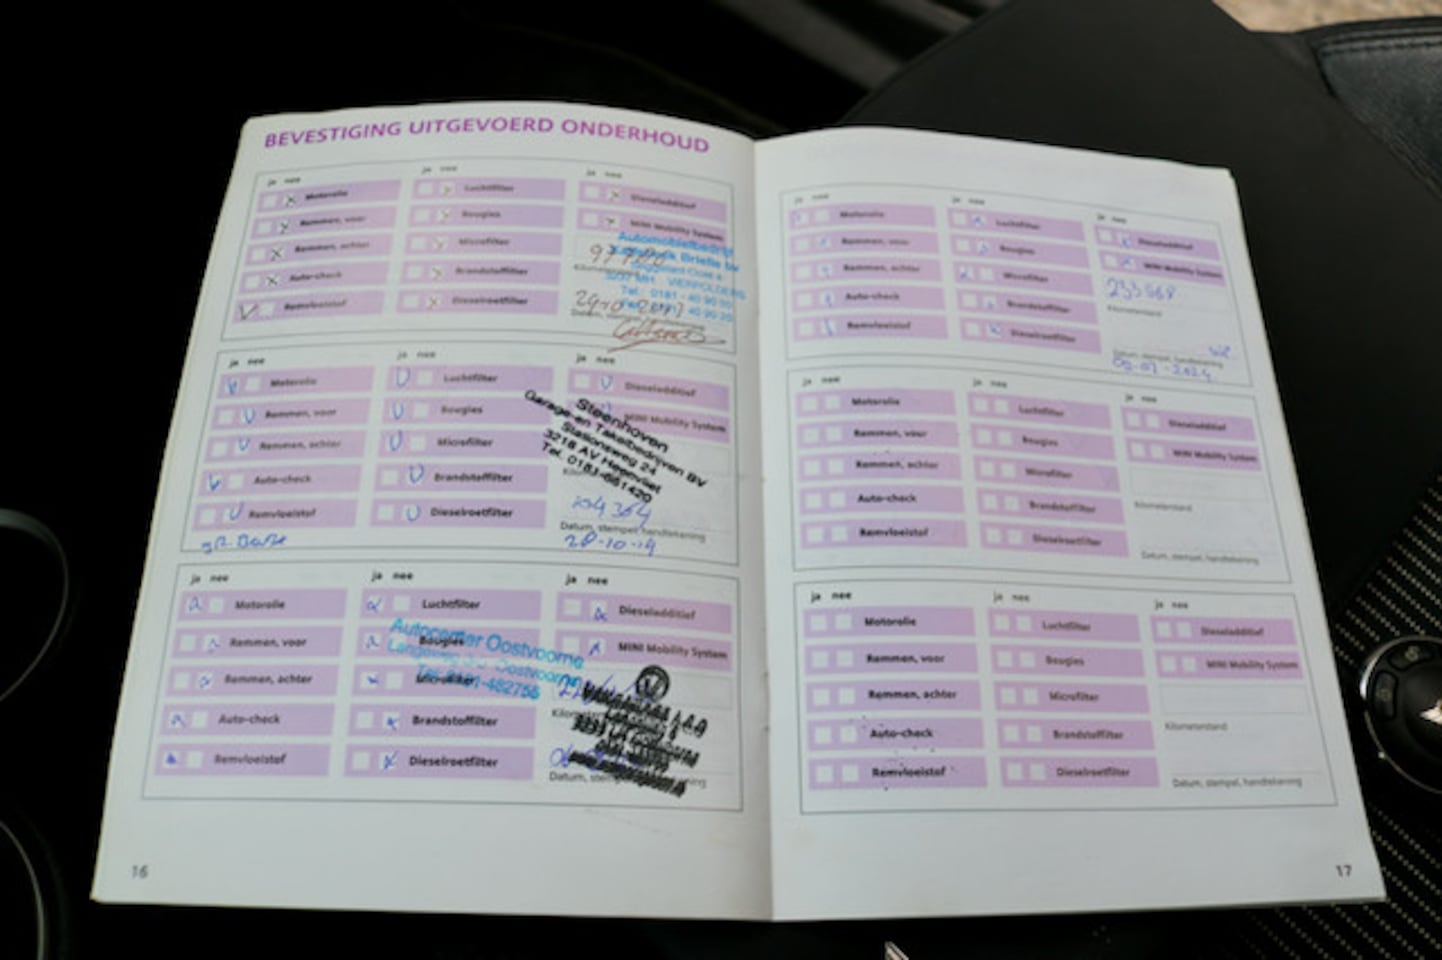 BEVESTIGING UITGEVOERD ONDERHOUD
ja nee
ja nee
ja nee
Motorolie
Luchtfilter
Dieseladditief
Remmen, voor
Bougies
MINI Mobility System
Remmen, achter
Microfilter
Auto-check
Brandstoffilter
Remvloeistof
Dieselroetfilter
Automobielbedrijf
Tel. 0181 - 40
ja nee
ja nee
ja nee
Motorolie
Luchtfilter
Dieseladditief
Remmen, voor
Bougies
MINI Mobility System
Remmen, achter
Microfilter
Auto-check
Brandstoffilter
Remvloeistof
Dieselroetfilter
Steenhoven
Garage en Takelbedrijven BV
Stationsweg 24
3218 AV Heenvliet
Tel. 0181-661420
104 364
Datum, stempel, handtekening
28-10-19
ja nee
ja nee
ja nee
Motorolie
Luchtfilter
Dieseladditief
Remmen, voor
Bougies
MINI Mobility System
Remmen, achter
Microfilter
Auto-check
Brandstoffilter
Remvloeistof
Dieselroetfilter
Autocenter Oostvoorne
Oostvoorne
-482755
16
ja nee
ja nee
ja nee
Motorolie
Luchtfilter
Dieseladditief
Remmen, voor
Bougies
MINI Mobility System
Remmen, achter
Microfilter
Auto-check
Brandstoffilter
Remvloeistof
Dieselroetfilter
233568
Kilometerstand
Datum, stempel, handtekening
02-07-2024
ja nee
ja nee
ja nee
Motorolie
Luchtfilter
Dieseladditief
Remmen, voor
Bougies
MINI Mobility System
Remmen, achter
Microfilter
Auto-check
Brandstoffilter
Remvloeistof
Dieselroetfilter
Kilometerstand
Datum, stempel, handtekening
ja nee
ja nee
ja nee
Motorolie
Luchtfilter
Dieseladditief
Remmen, voor
Bougies
MINI Mobility System
Remmen, achter
Microfilter
Auto-check
Brandstoffilter
Remvloeistof
Dieselroetfilter
Kilometerstand
Datum, stempel, handtekening
17